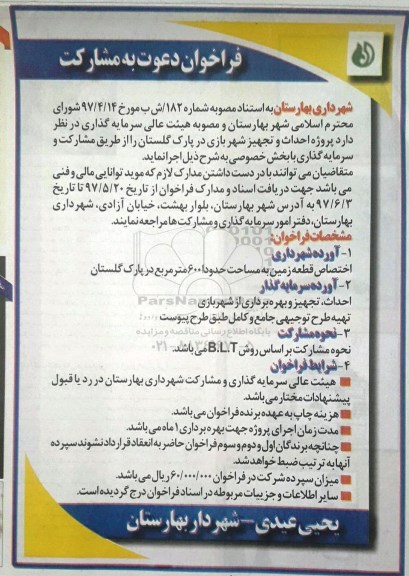 فراخوان دعوت به مشارکت
شهرداری بهارستان به استناد مصوبه شماره ۱۸۲/ش ب مورخ ۹۷/۴/۱۴ شورای
محترم اسلامی شهر بهارستان و مصوبه هیئت عالی سرمایه گذاری در نظر
دارد پروژه احداث و تجهیز شهربازی در پارک گلستان را از طریق مشارکت و
سرمایه گذاری با بخش خصوصی به شرح ذیل اجرا نماید.
متقاضیان می توانند با در دست داشتن مدارک لازم که موید توانایی مالی و فنی
می باشد جهت دریافت اسناد و مدارک فراخوان از تاریخ ۹۷/۵/۲۰ تا تاریخ
۹۷/۶/۳ به آدرس شهر بهارستان، بلوار بهشت، خیابان آزادی، شهرداری
بهارستان، دفتر امور سرمایه گذاری و مشارکت ها مراجعه نمایند.
مشخصات فراخوان:
۱- آورده شهرداری
اختصاص قطعه زمین به مساحت حدود ۶۰۰ متر مربع در پارک گلستان
۲- آورده سرمایه گذار
احداث، تجهیز و بهره برداری از شهربازی
تهیه طرح توجیهی جامع و کامل طبق طرح پیوست
۳- نحوه مشارکت
نحوه مشارکت بر اساس روش B.L.T می باشد.
۴- شرایط فراخوان
هیئت عالی سرمایه گذاری و مشارکت شهرداری بهارستان در رد یا قبول
پیشنهادات مختار می باشد.
هزینه چاپ به عهده برنده فراخوان می باشد.
مدت زمان اجرای پروژه جهت بهره برداری ۱ ماه می باشد.
چنانچه برندگان اول و دوم و سوم فراخوان حاضر به انعقاد قرارداد نشوند سپرده
آنها به ترتیب ضبط خواهد شد.
میزان سپرده شرکت در فراخوان ۶۰/۰۰۰/۰۰۰ ریال می باشد.
سایر اطلاعات و جزییات مربوطه در اسناد فراخوان درج گردیده است.
یحیی عیدی - شهردار بهارستان